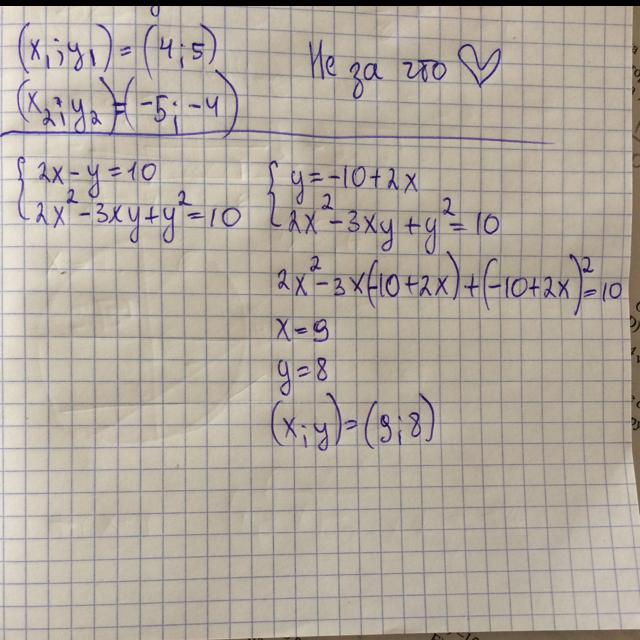 (x₁;y₁)=(4;5)
Не за что ♡
(x₂;y₂)=(-5;-4)
{2x-y=10
2x²-3xy+y²=10
{y=-10+2x
2x²-3xy+y²=10
2x²-3x(-10+2x)+(-10+2x)²=10
x=9
y=8
(x;y)=(9;8)